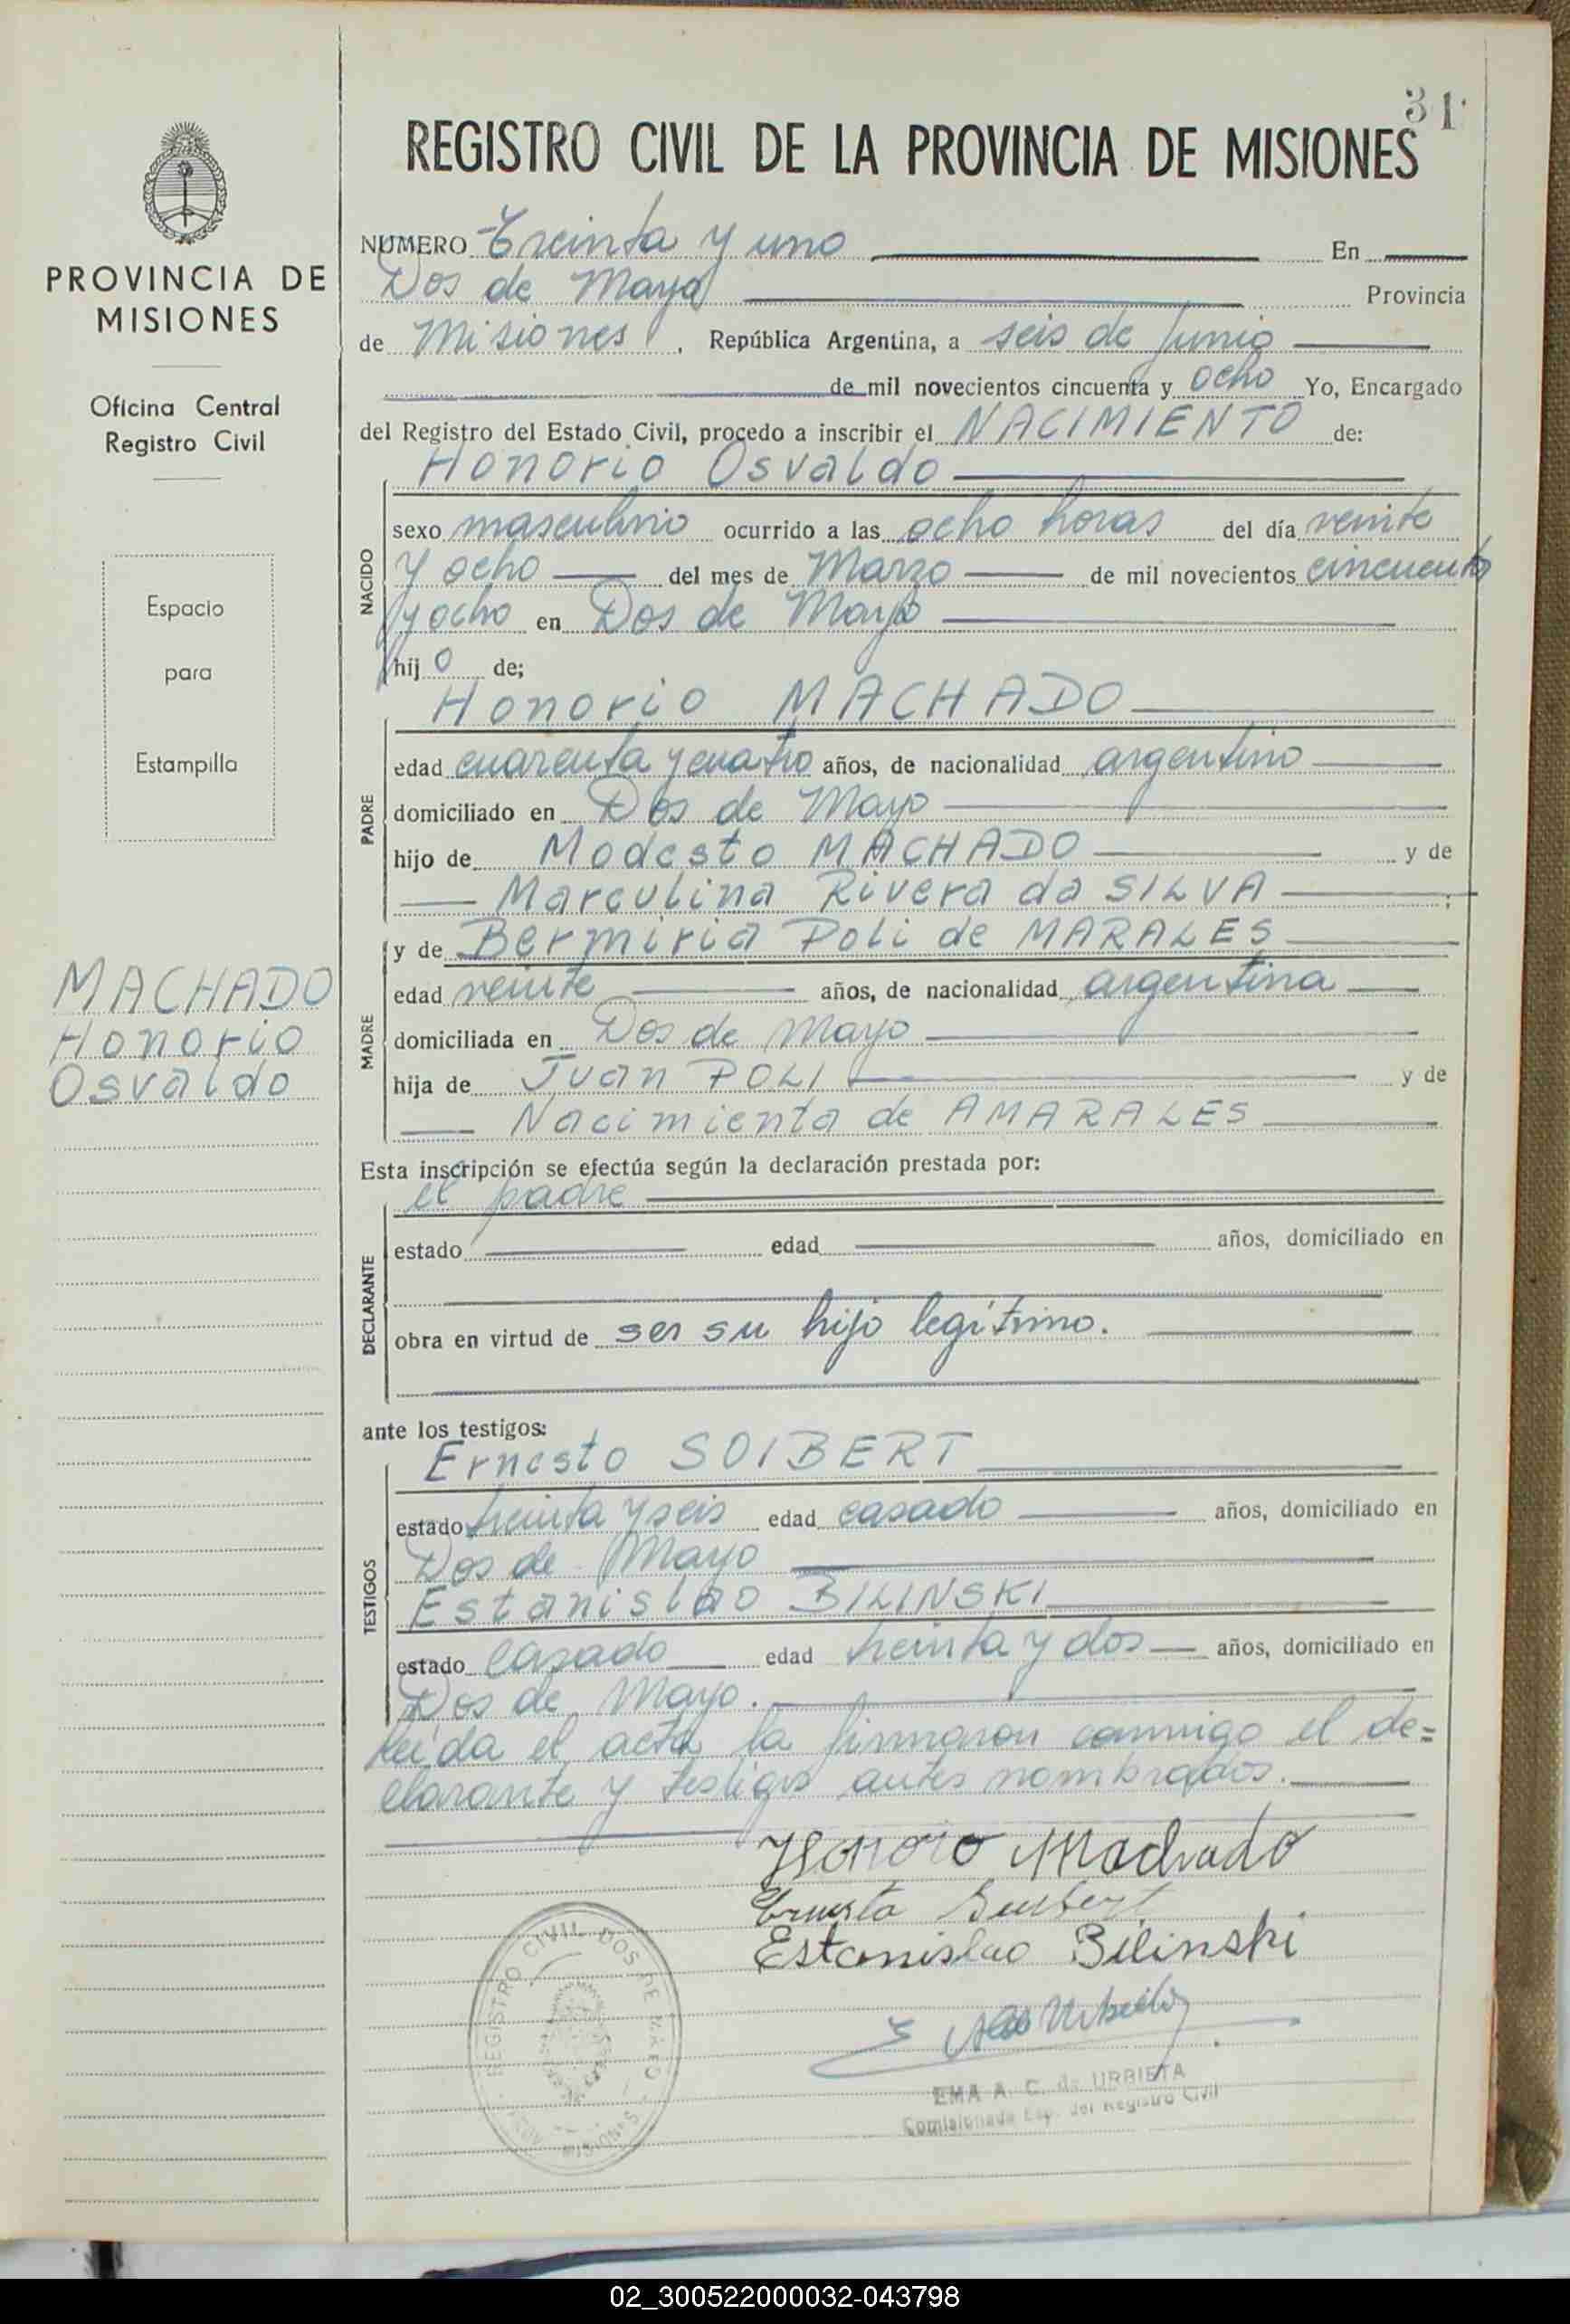 31
REGISTRO CIVIL DE LA PROVINCIA DE MISIONES
PROVINCIA DE
MISIONES
Oficina Central
Registro Civil
Espacio
para
Estampilla
MACHADO
Honorio
Osvaldo
NUMERO Treinta y uno En
Dos de Mayo Provincia
de Misiones, República Argentina, a seis de Junio
de mil novecientos cincuenta y ocho Yo, Encargado
del Registro del Estado Civil, procedo a inscribir el NACIMIENTO de:
Honorio Osvaldo
NACIDO
sexo masculino ocurrido a las ocho horas del día veinte
y ocho del mes de Marzo de mil novecientos cincuenta
y ocho en Dos de Mayo
hijo de;
Honorio MACHADO
PADRE
edad cuarenta y cuatro años, de nacionalidad argentino
domiciliado en Dos de Mayo
hijo de Modesto MACHADO y de
Marculina Rivera da SILVA;
y de Bermiria Poli de MARALES
MADRE
edad veinte años, de nacionalidad argentina
domiciliada en Dos de Mayo
hija de Juan POLI y de
Nacimienta de AMARALES
Esta inscripción se efectúa según la declaración prestada por:
el padre
DECLARANTE
estado edad años, domiciliado en
obra en virtud de ser su hijo legítimo.
ante los testigos:
Ernesto SOIBERT
TESTIGOS
estado treinta y seis edad casado años, domiciliado en
Dos de Mayo
Estanislao BILINSKI
estado casado edad treinta y dos años, domiciliado en
Dos de Mayo.
Leída el acta la firmaron conmigo el de=
clarante y testigos antes nombrados.
Honorio Machado
Ernesto Seibert
Estanislao Bilinski
REGISTRO CIVIL DOS DE MAYO
MISIONES
EMA A. C. de URBIETA
Comisionada Esp. del Registro Civil
02_300522000032-043798